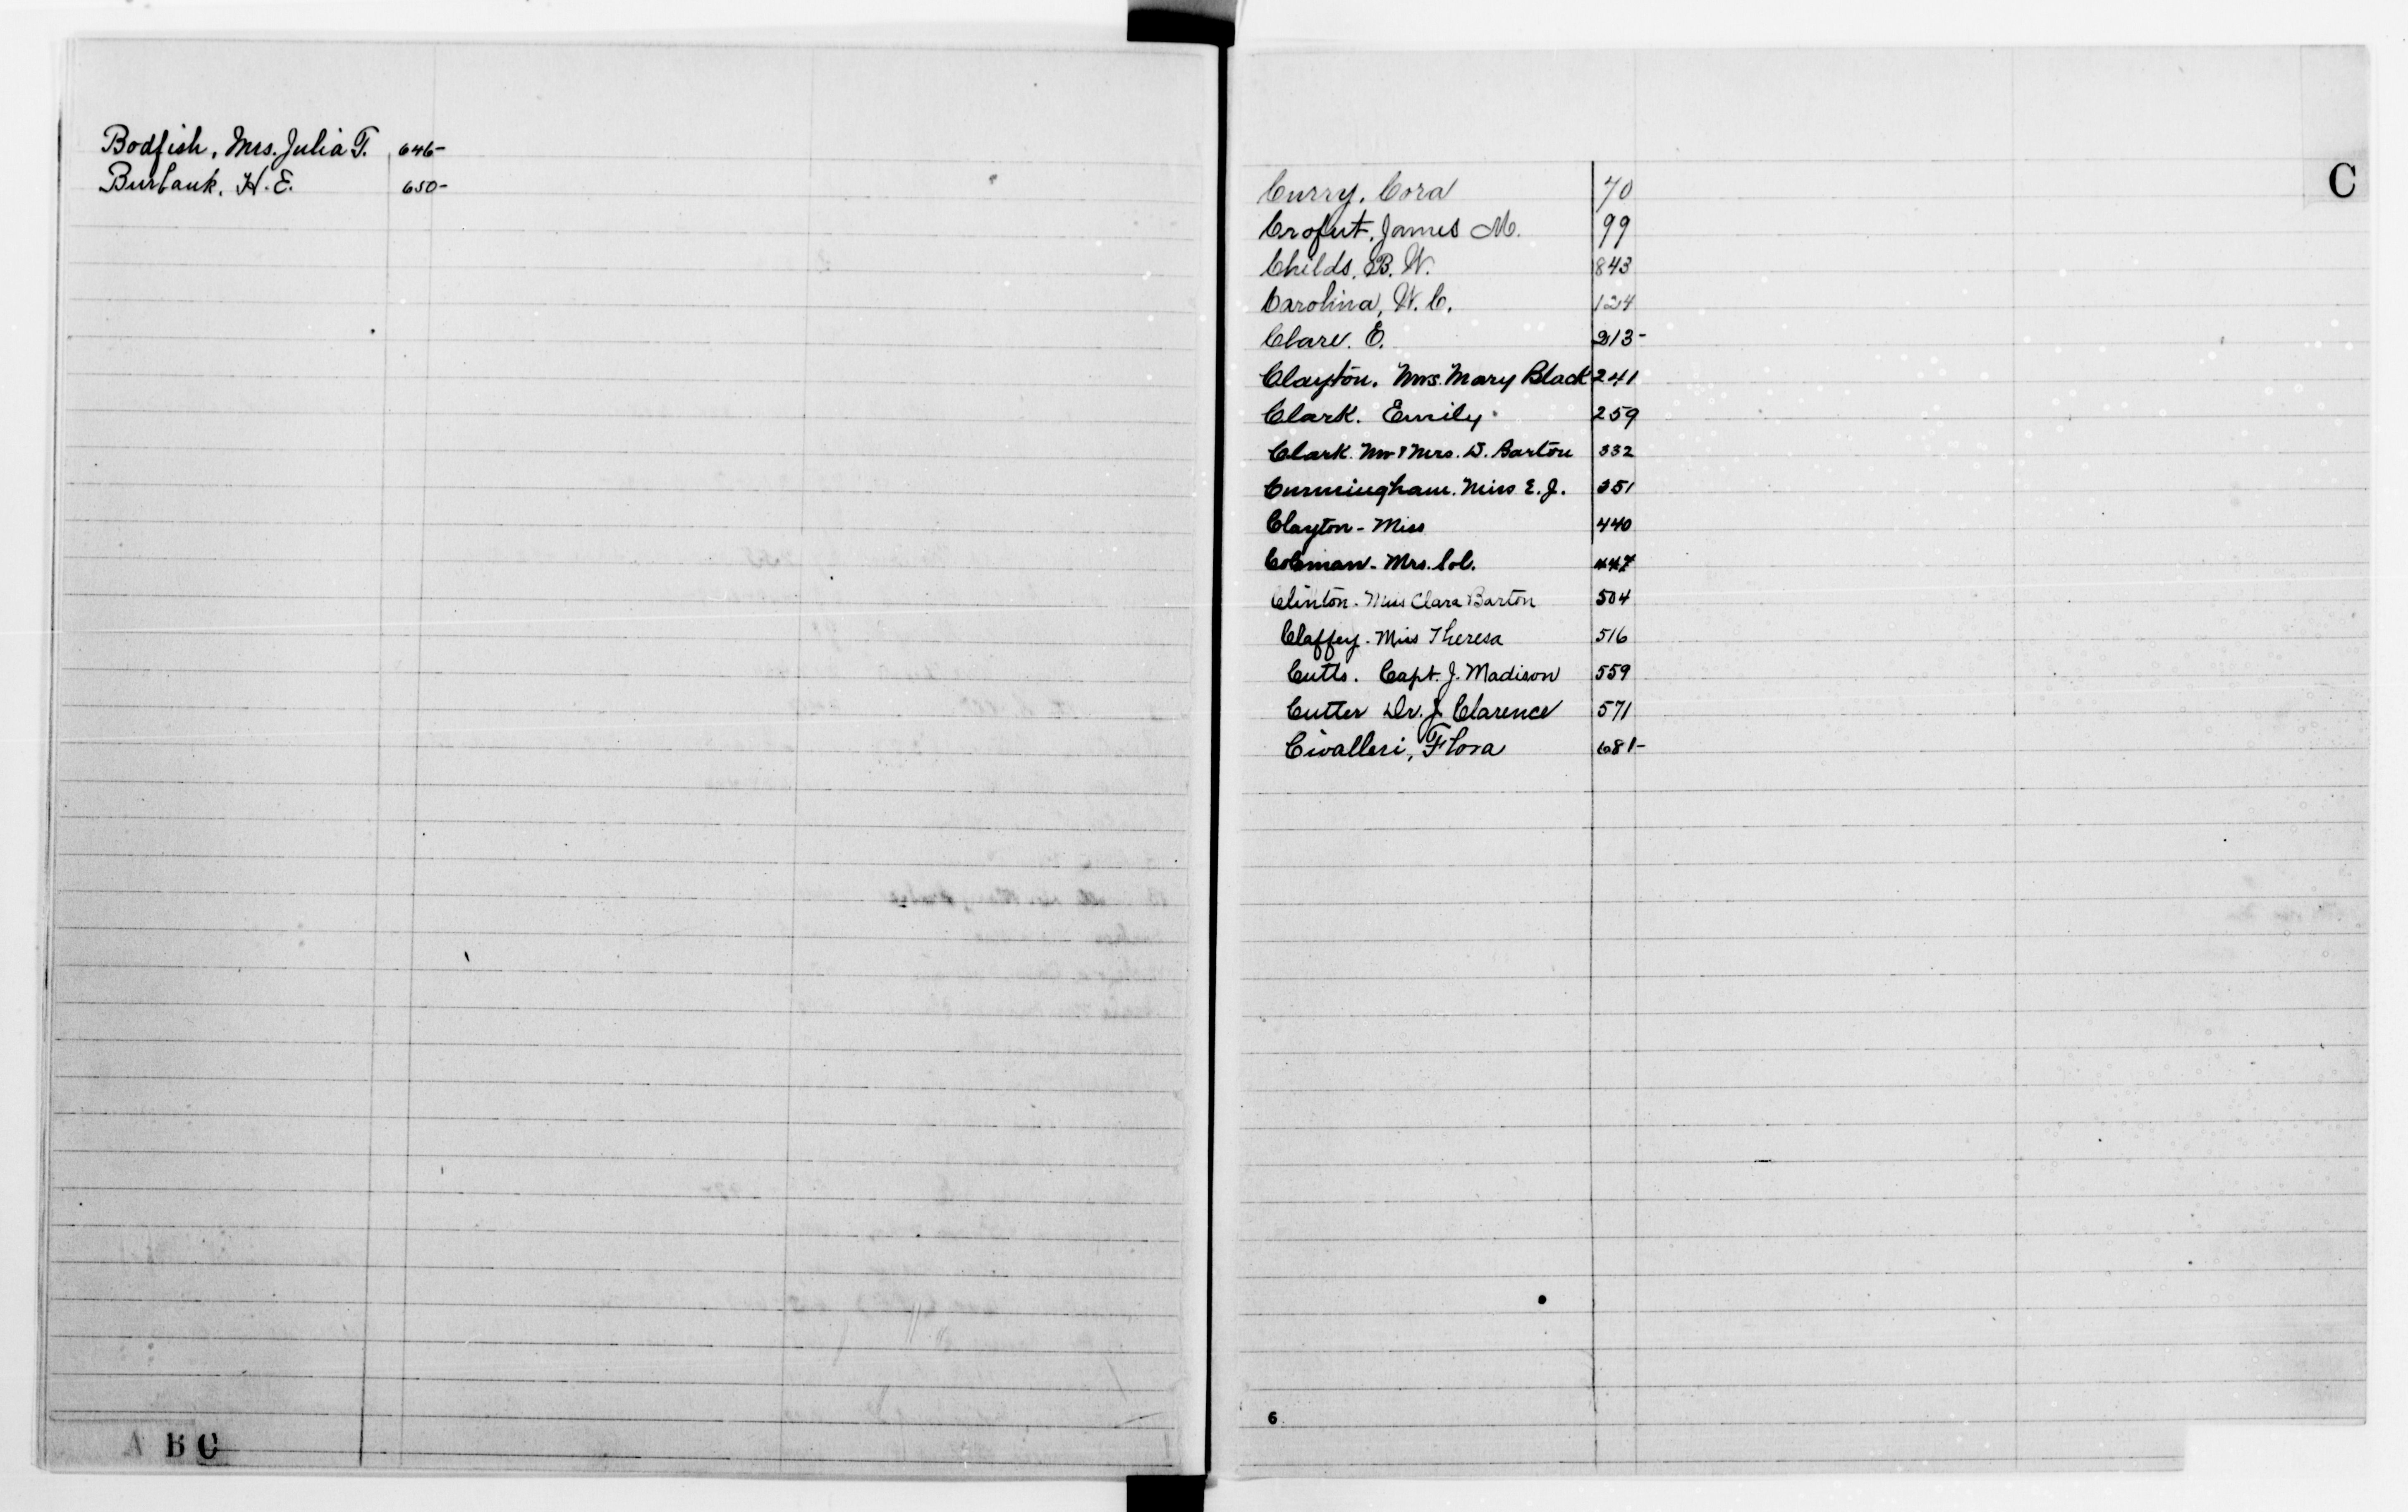 Bodfish, Mrs. Julia T. 646-
Burbank, H. E. 650-
A B C
C
Curry, Cora 70
Crofut, James M. 99
Childs, B. W. 843
Carolina, W. C. 124
Clare. E. 213-
Clayton. Mrs. Mary Black 241
Clark. Emily 259
Clark. Mr & Mrs. D. Barton 332
Cunningham. Miss E. J. 351
Clayton - Miss 440
Coleman - Mrs. Col. 447
Clinton. Miss Clara Barton 504
Claffey. Miss Theresa 516
Cutts. Capt. J. Madison 559
Cutter Dr. J. Clarence 571
Civalleri, Flora 681-
6